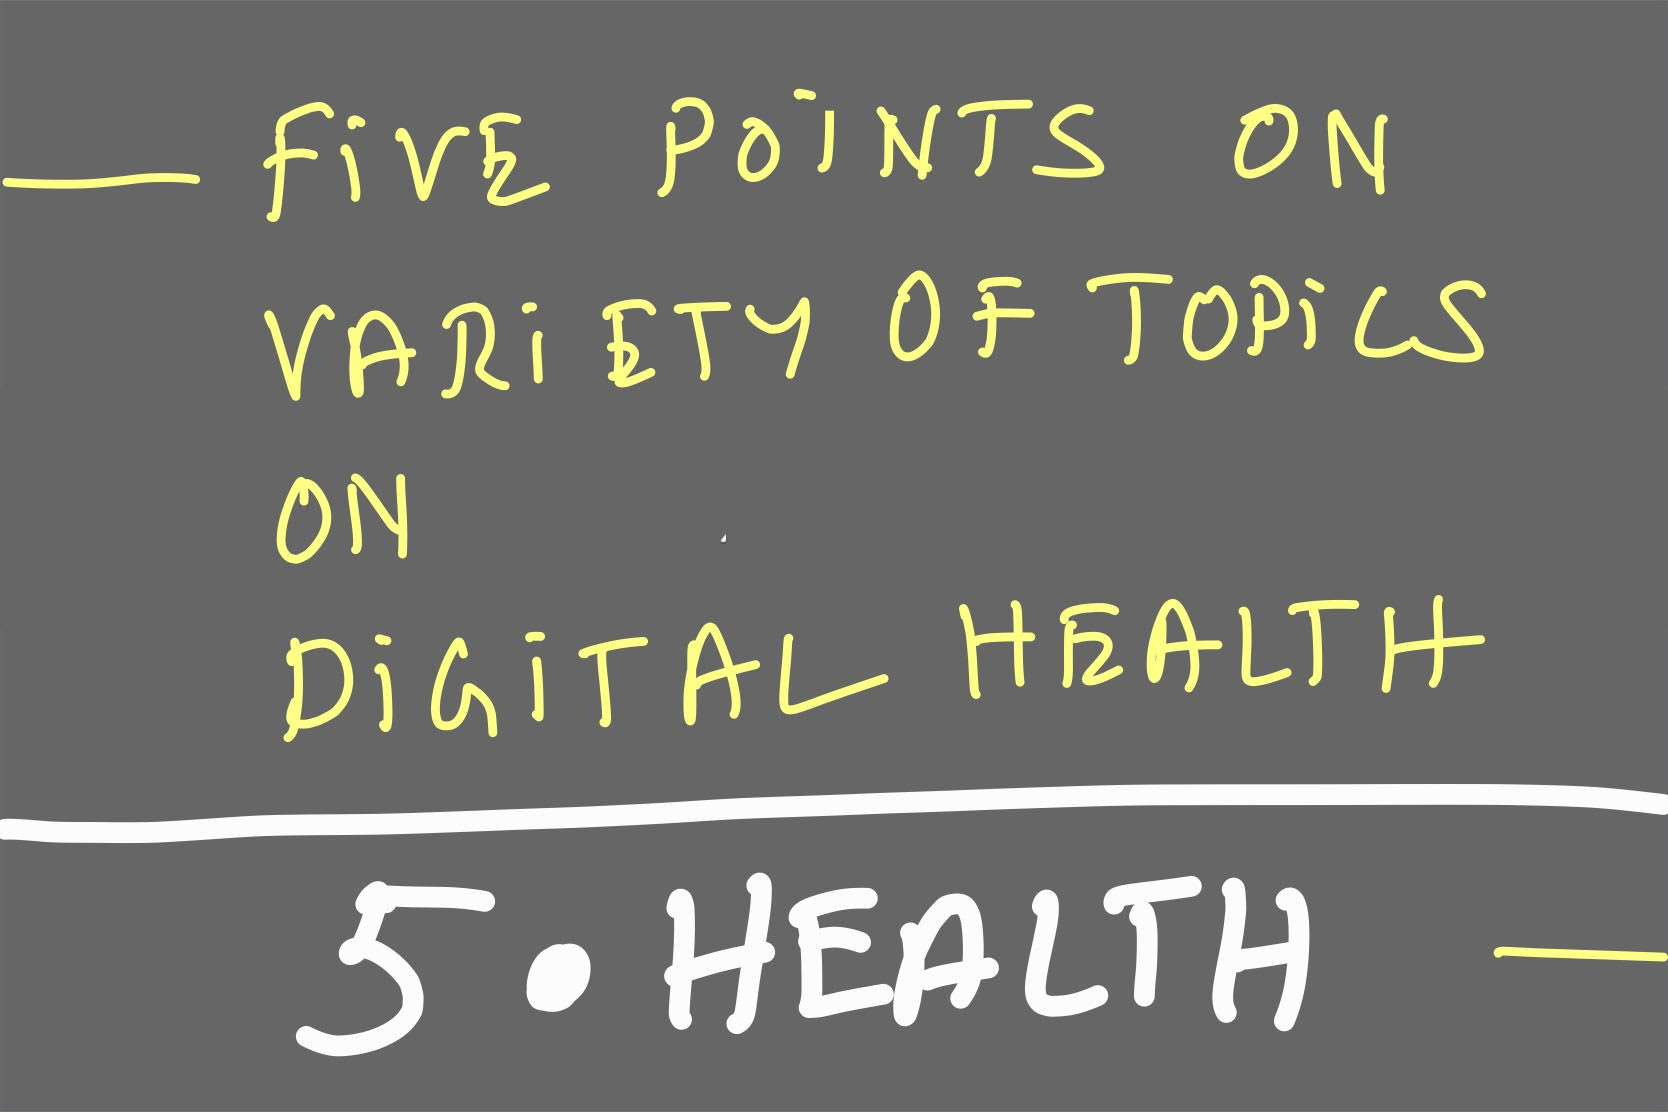 FiVE POiNTS ON
VARiETY OF TOPiCS
ON
DiGiTAL HEALTH
5. HEALTH